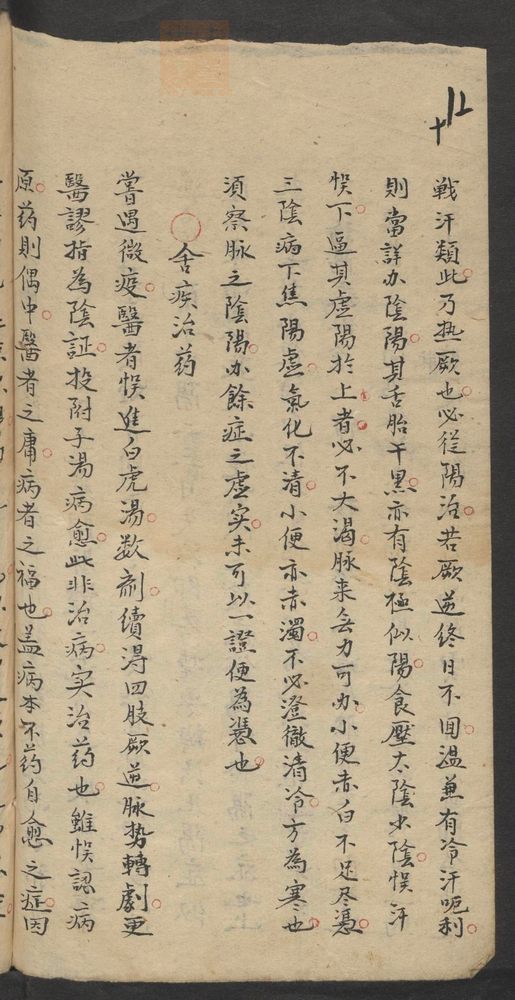 戰汗類此乃热厥也必從陽治若厥逆終日不囬温兼有冷汗呃利
則當詳办陰陽其舌胎干黑亦有陰極似陽食壓太陰少陰悞汗
悞下逼其虚陽於上者必不大渴脉来无力可办小便赤白不足尽慿
三陰病下焦陽虚氣化不清小便亦赤濁不必澄徹清冷方為寒也
須察脉之陰陽办餘症之虚实未可以一證便為慿也
舍病治药
嘗遇微疫醫者悞進白虎湯数劑續淂四肢厥逆脉势轉劇更
醫謬指為陰証投附子湯病愈此非治病实治药也雖悞認病
原药則偶中醫者之庸病者之福也盖病本不药自愈之症因